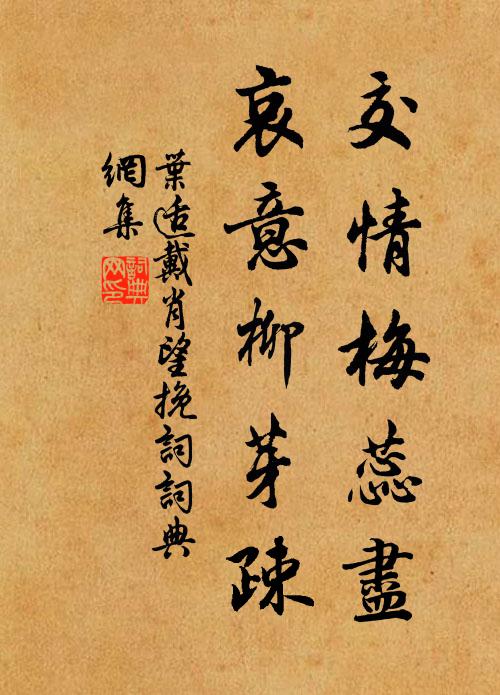 交情梅蕊盡
哀意柳芽疎
葉适戴肖望挽詞詞典
網集
詞典
网印